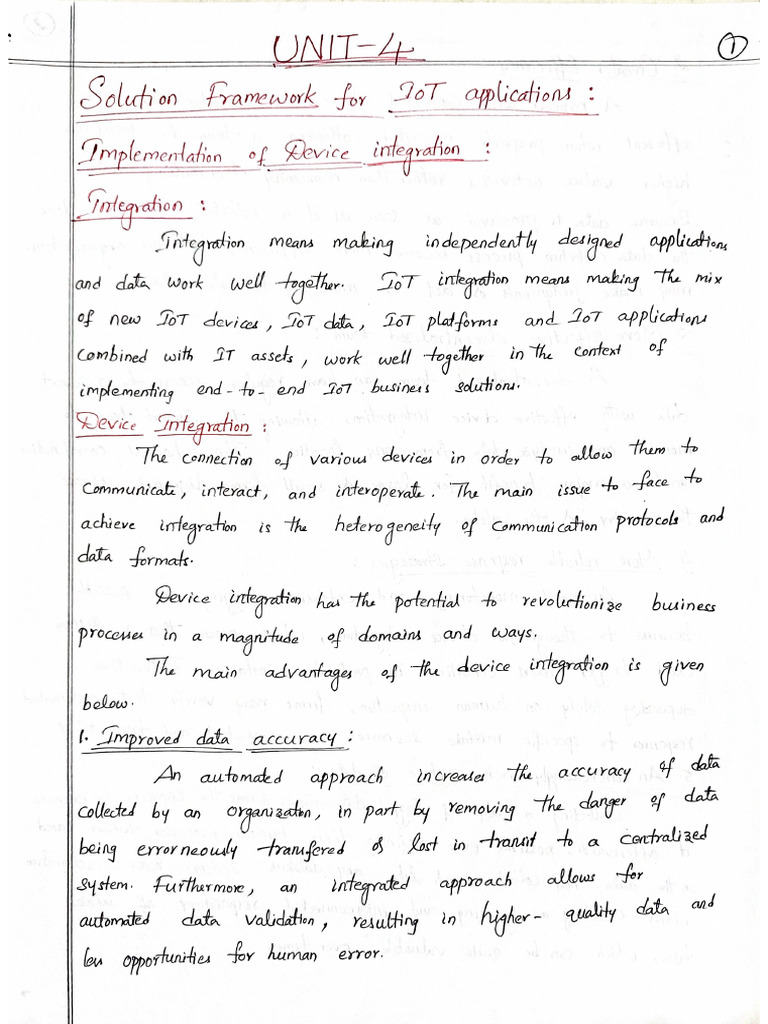 UNIT-4
1
Solution Framework for IoT applications :
Implementation of Device integration :
Integration :
Integration means making independently designed applications
and data work well together. IoT integration means making the mix
of new IoT devices, IoT data, IoT platforms and IoT applications
Combined with IT assets, work well together in the context of
implementing end-to-end IoT business solutions.
Device Integration :
The connection of various devices in order to allow them to
Communicate, interact, and interoperate. The main issue to face to
achieve integration is the heterogeneity of Communication protocols and
data formats.
Device integration has the potential to revolutionize business
processes in a magnitude of domains and ways.
The main advantages of the device integration is given
below.
1. Improved data accuracy :
An automated approach increases the accuracy of data
collected by an organization, in part by removing the danger of data
being errorneously transfered or lost in transit to a centralized
system. Furthermore, an integrated approach allows for
automated data validation, resulting in higher-quality data and
less opportunities for human error.